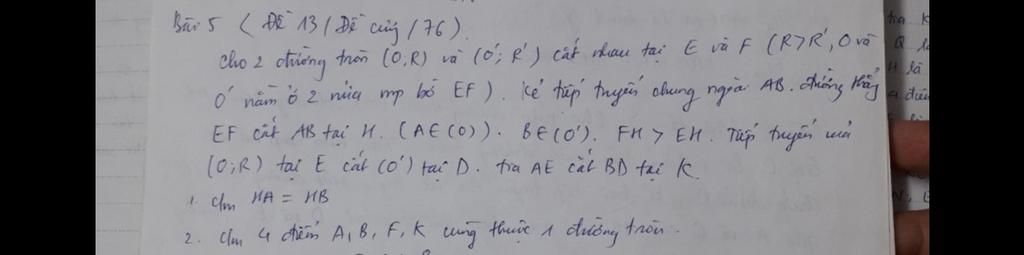 Bài 5 ( Đề 13 / Đề cứng / 76 ).
Cho 2 đường tròn (O,R) và (O'; R') cắt nhau tại E và F ( R>R', O và
O' nằm ở 2 nửa mp bờ EF ). Kẻ tiếp tuyến chung ngoài AB. đường thẳng
EF cắt AB tại H. (A∈(O)). B∈(O'). FH > EH. Tiếp tuyến của
(O;R) tại E cắt (O') tại D. tia AE cắt BD tại K.
1. Cm HA = HB
2. Cm 4 điểm A, B, F, K cùng thuộc 1 đường tròn.